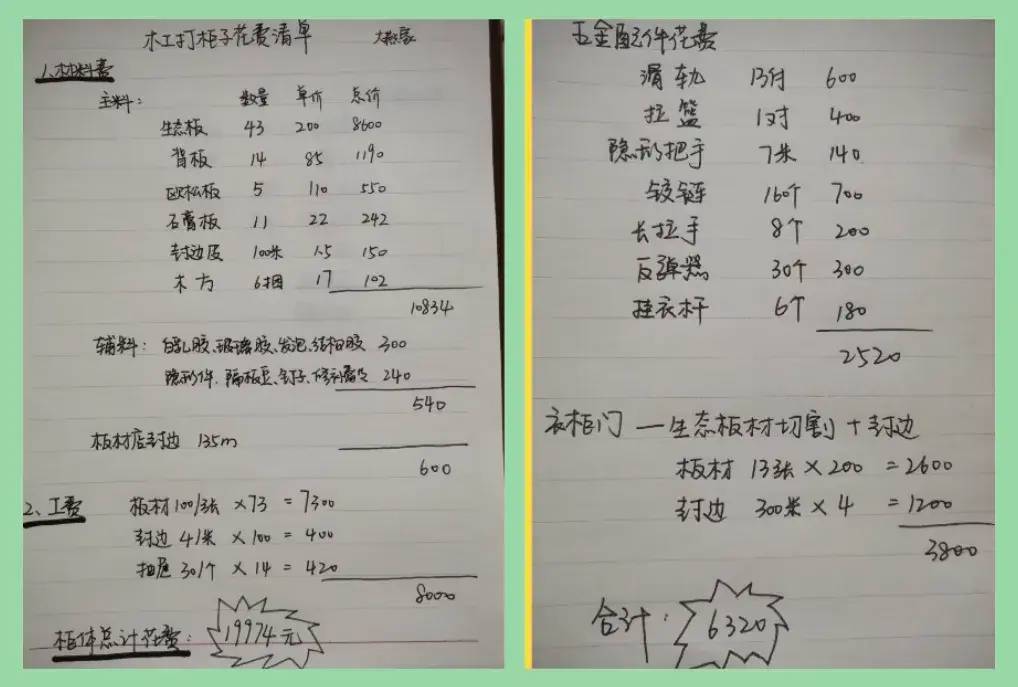 木工打柜子花费清单
1.材料费
主料: 数量 单价 总价
生态板 43 200 8600
背板 14 85 1190
欧松板 5 110 550
石膏板 11 22 242
封边皮 100米 1.5 150
木方 6捆 17 102
10834
辅料: 白乳胶、玻璃胶、发泡、结构胶 300
隐形件、隔板豆、钉子、修补膏 240
540
板材店封边 135m
600
2、工费 板材100/张 ×73 = 7300
封边 4/米 × 100 = 400
抽屉 30/个 × 14 = 420
8000
柜体总计花费: 19974元
五金配件花费
滑轨 13付 600
拉篮 1对 400
隐形把手 7米 140
铰链 160个 700
长拉手 8个 200
反弹器 30个 300
挂衣杆 6个 180
2520
衣柜门 — 生态板材切割 + 封边
板材 13张 × 200 = 2600
封边 300米 × 4 = 1200
3800
合计: 6320